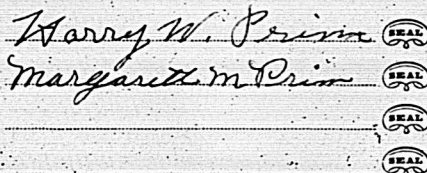 Harry W. Prim SEAL
Margarett M Prim SEAL
SEAL
SEAL